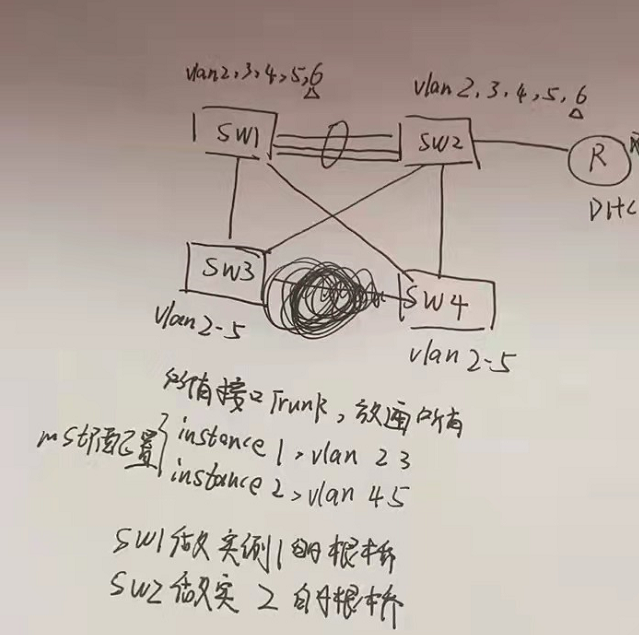 vlan2,3,4,5,6
vlan 2,3,4,5,6
SW1
SW2
R
DHC
SW3
SW4
vlan 2-5
vlan 2-5
所有接口Trunk,放通所有
mst预配置
instance 1,vlan 2 3
instance 2,vlan 4 5
SW1做实例1的根桥
SW2做实2的根桥